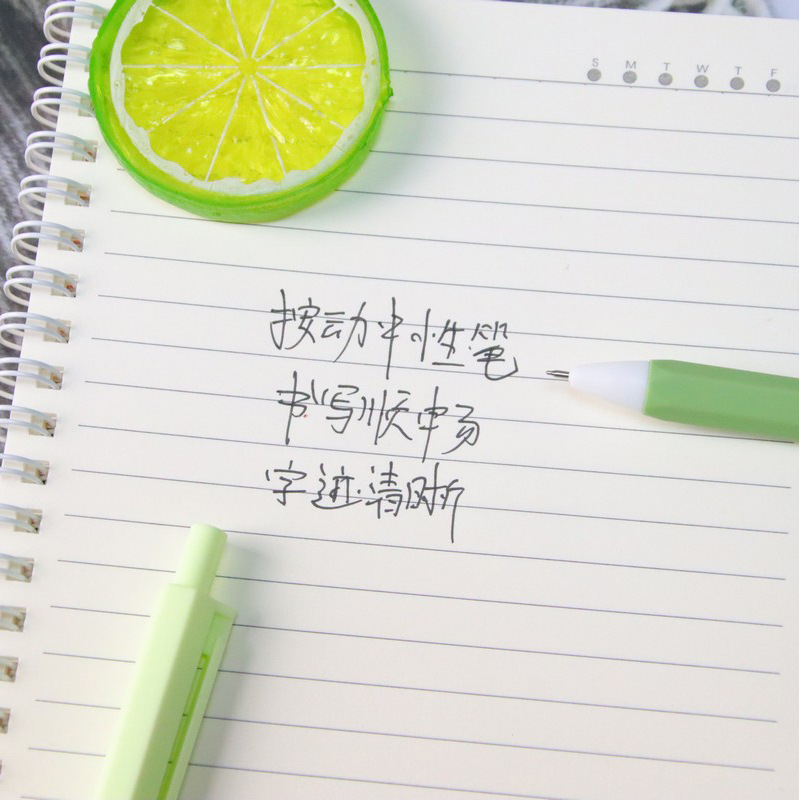 S M T W T F
按动中性笔
书写顺畅
字迹清晰